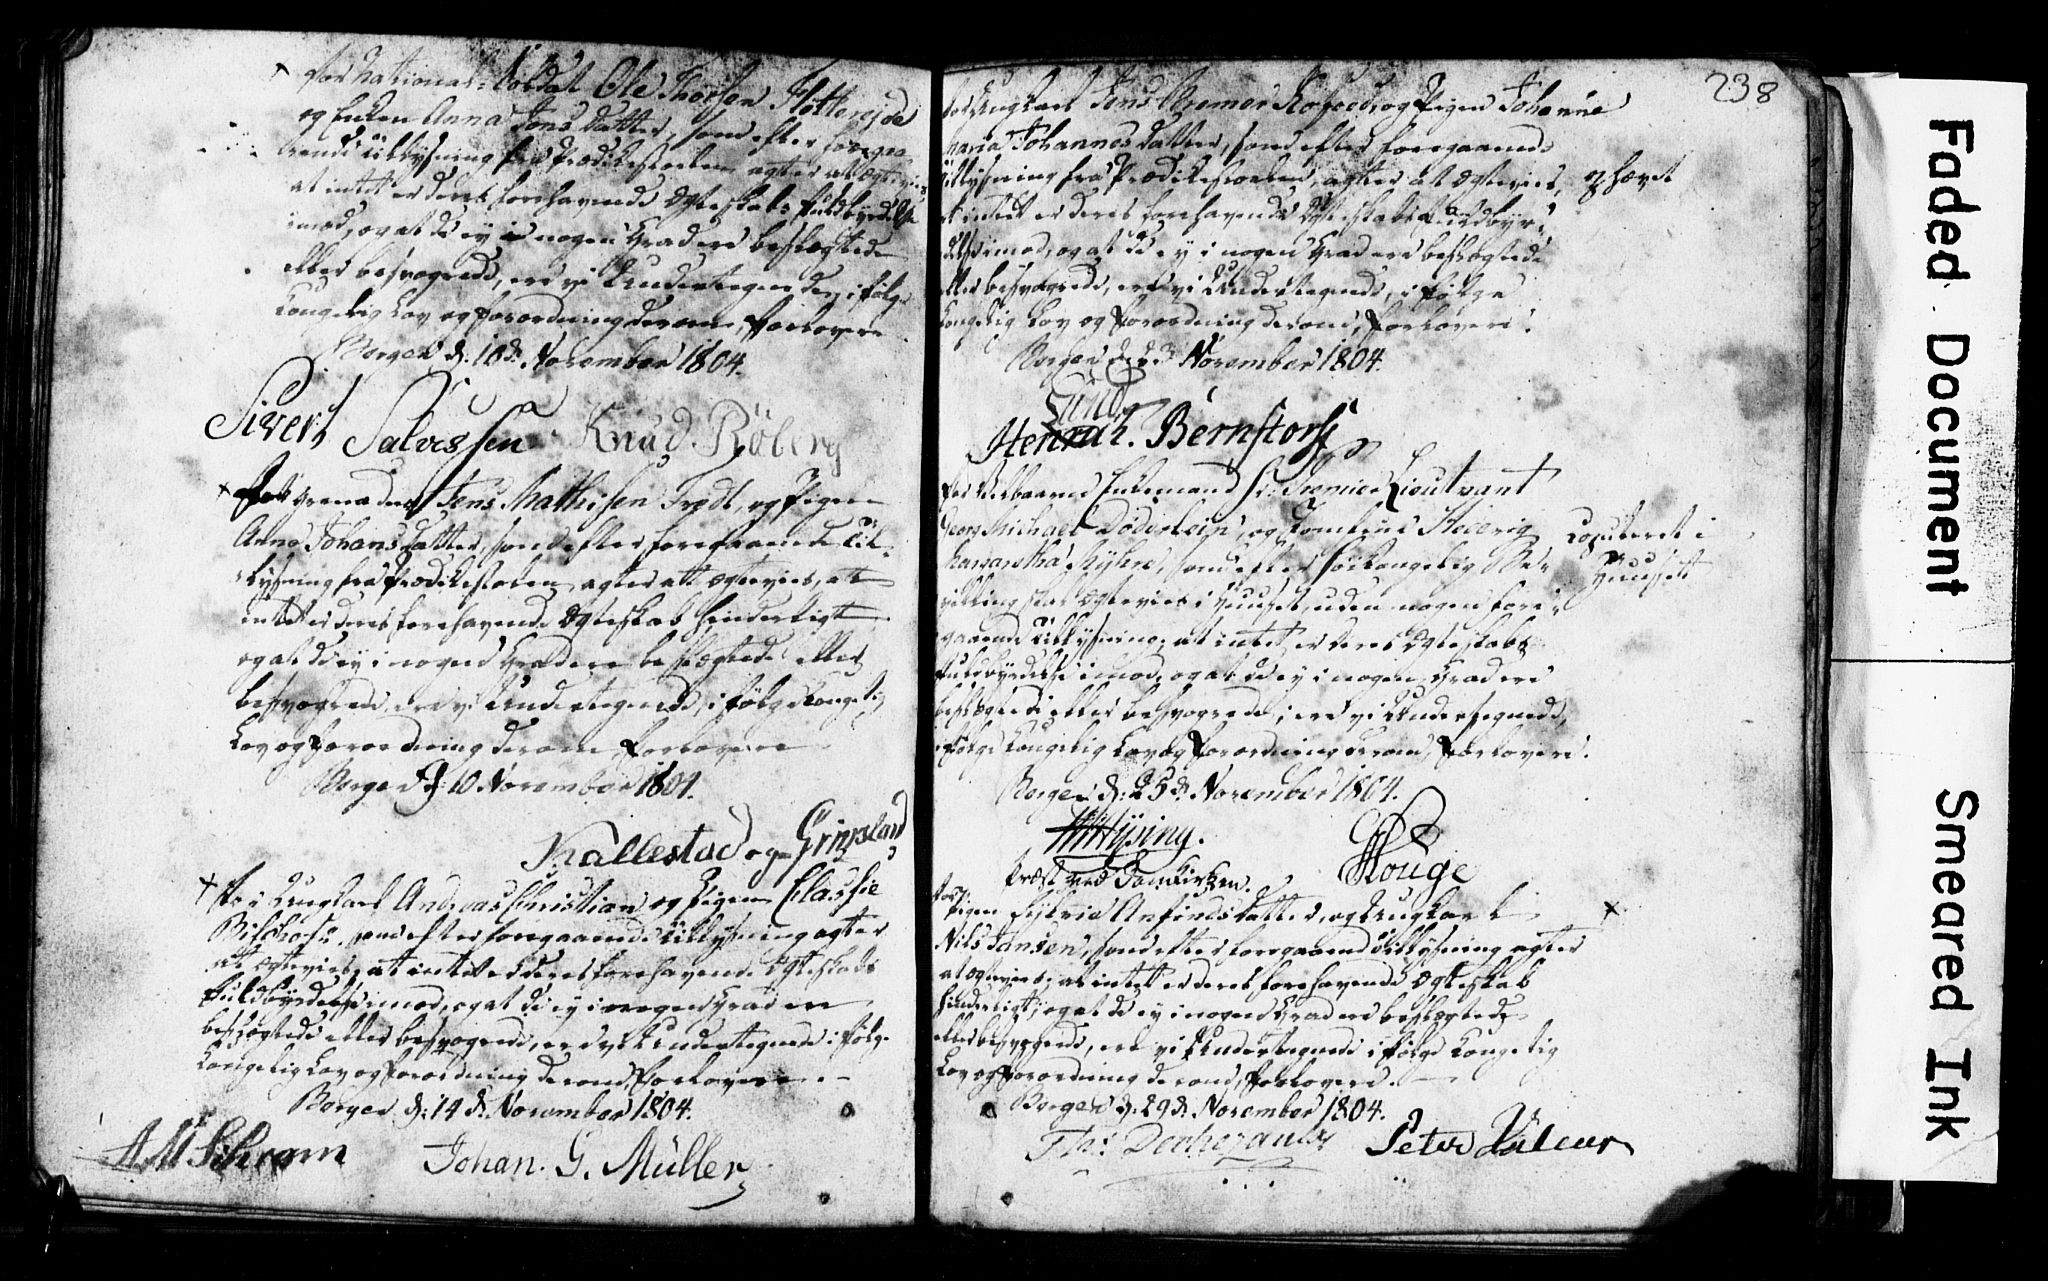 For National-Soldat Ole Thorsen
og Enken Anna Jons datter, som efter foregaa-
ende Tillysning fra Prædikestolen agter at ægtevies
at intet er deres forehavende Ægteskabs Fuldbyrdelse
imod, og at de ey i nogen Grad ere beslægtede
eller besvogrede, ere vi Undertegnede, i følge
Kongelig Lov og Forordning derom, Forlovere
Bergen d: 10de November 1804.
Sivert Salvessen Knud Röberg
For Grenadeer Jens Mathisen Trydt, og Pigen
Anna Johans datter, som efter foregaaende Til-
lysning fra Prædikestolen agter att ægtevies, att
intet er deres forehavende Ægteskab hinderligt
og at de ey i nogen Grad ere beslægtede eller
besvogrede, ere vi Undertegnede, i følge Kongelig
Lov og Forordning derom Forlovere
Bergen d: 10 November 1804.
Kallestad og Gripsland
For Ungkarl Andreas Christian og Pigen
som efter foregaaende Tillysning agter
at ægtevies, at intet er deres forehavende Ægteskabs
Fuldbyrdelse imod, og at de ey i nogen Grad ere
beslægtede eller besvogrede, ere vi Undertegnede i følge
Kongelig Lov og Forordning derom Forlovere.
Bergen d: 14 de November 1804.
A M Schram Johan. G. Müller
238
For Ungkarl Jens og Pigen Johanne
Maria Johannes datter, som efter foregaaende
Tillysning fra Prædikestolen, agter at ægtevies,
at intet er deres forehavende Ægteskabs Fuldbyr-
delse imod, og at de ey i nogen Grad ere beslægtede
eller besvogrede, ere vi Undertegnede, i følge
Kongelig Lov og Forordning derom, Forlovere.
ophævet
Bergen d: 23 November 1804.
Lund
Henrich. Bernstorf
For Velbaarne Enkemand Hr: Premier Lieutenant
Georg Michael Döderlein, og Jomfrue Hedevig
Margaretha Myhre, som efter Kongelig Be-
villing skal ægtevies i Huuset, uden nogen fore-
gaaende Tillysning, at intet er deres Ægteskabs
Fuldbyrdelse imod, og at de ey i nogen Grad ere
beslægtede eller besvogrede, ere vi Undertegnede,
i følge Kongelig Lov og Forordning derom, Forlovere.
Copuleret i
Huuset
Bergen d: 25de November 1804.
Hysing.
Præst ved Domkirken.
Houge
For
Pigen Anfinds datter, og Ungkarl
Nils Jansen, som efter foregaaende Tillysning agter
at ægtevies; at intet er deres forehavende Ægteskab
hinderligt, og at de ey i nogen Grad ere beslægtede
eller besvogrede, ere vi Undertegnede i følge Kongelig
Lov og Forordning derom, Forlovere.
Bergen d. 29de November 1804.
Peter
Faded Document Smeared Ink